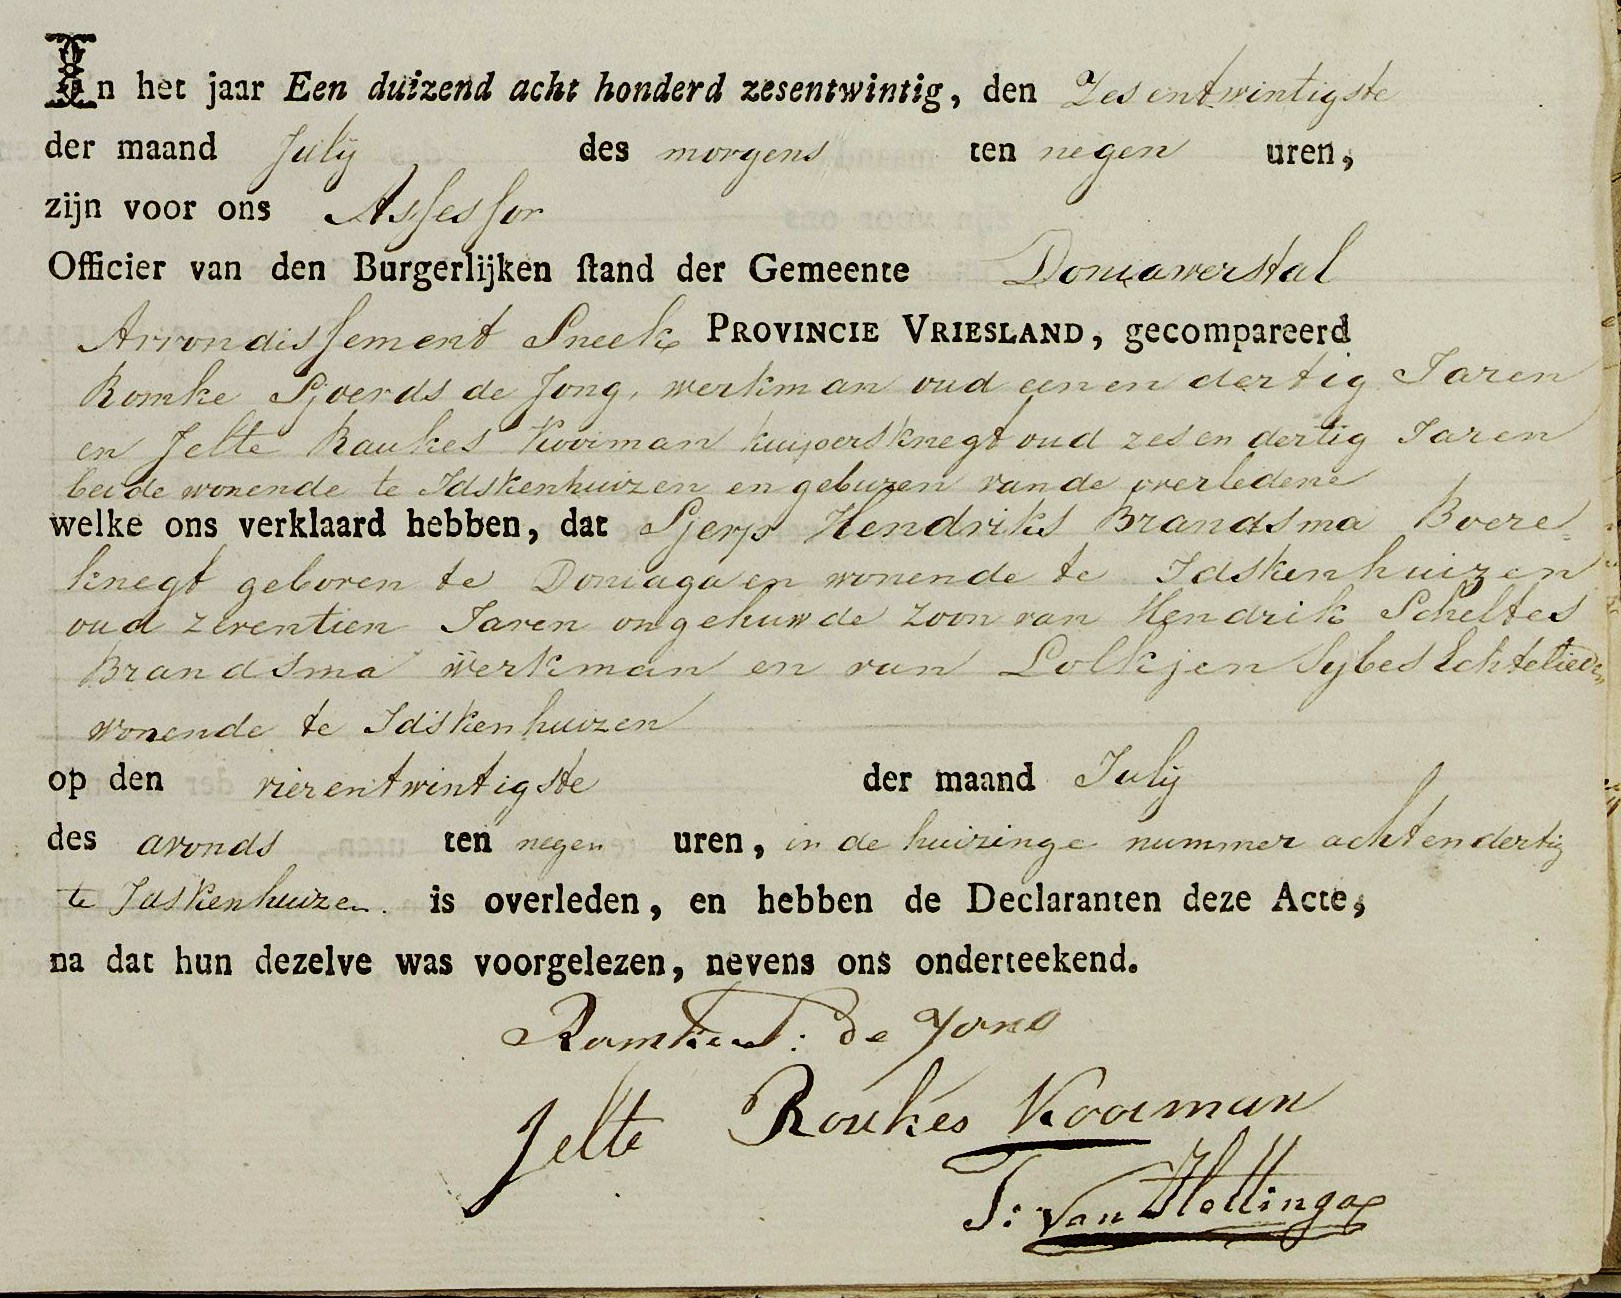 In het jaar Een duizend acht honderd zesentwintig, den Zesentwintigste
der maand July des morgens ten negen uren,
zijn voor ons Assessor
Officier van den Burgerlijken stand der Gemeente Doniawerstal
Arrondissement Sneek PROVINCIE VRIESLAND, gecompareerd
Romke Sjoerds de Jong, werkman oud eenen dertig Jaren
en Jelte Raukes Kooiman kuipersknegt oud zes en dertig Jaren
beide wonende te Idskenhuizen en geburen van de overledene
welke ons verklaard hebben, dat Sjerp Hendriks Brandsma Boere
knegt geboren te Doniaga en wonende te Idskenhuizen
oud zeventien Jaren ongehuwde zoon van Hendrik Scheltes
Brandsma werkman en van Lolkjen Sybes Echtelieden
wonende te Idskenhuizen
op den vierentwintigste der maand July
des avonds ten negen uren, in de huizinge nummer achtendertig
te Idskenhuizen. is overleden, en hebben de Declaranten deze Acte,
na dat hun dezelve was voorgelezen, nevens ons onderteekend.
Romke S: de Jong
Jelte Roukes Kooiman
T: van Hettinga